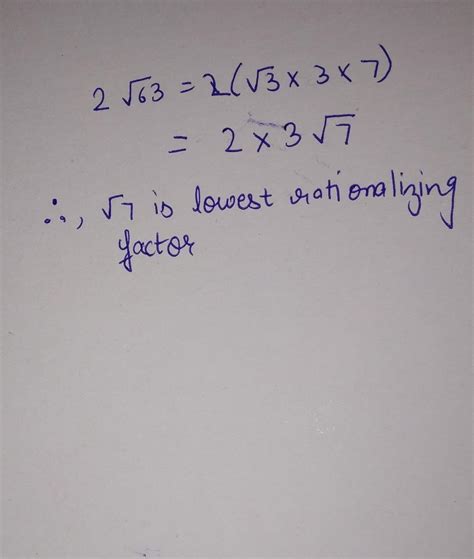 2 √63 = 2(√3 x 3 x 7)
= 2 x 3 √7
∴, √7 is lowest rationalizing
factor